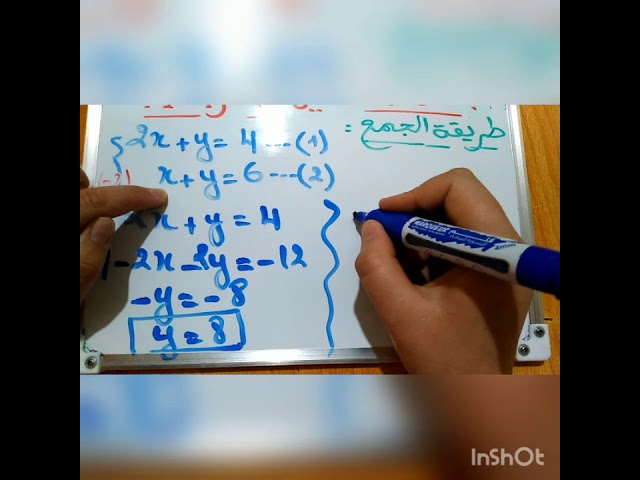 طريقة الجمع :
2x + y = 4 --- (1)
(-2) x + y = 6 --- (2)
2x + y = 4
-2x - 2y = -12
-y = -8
y = 8
InShOt